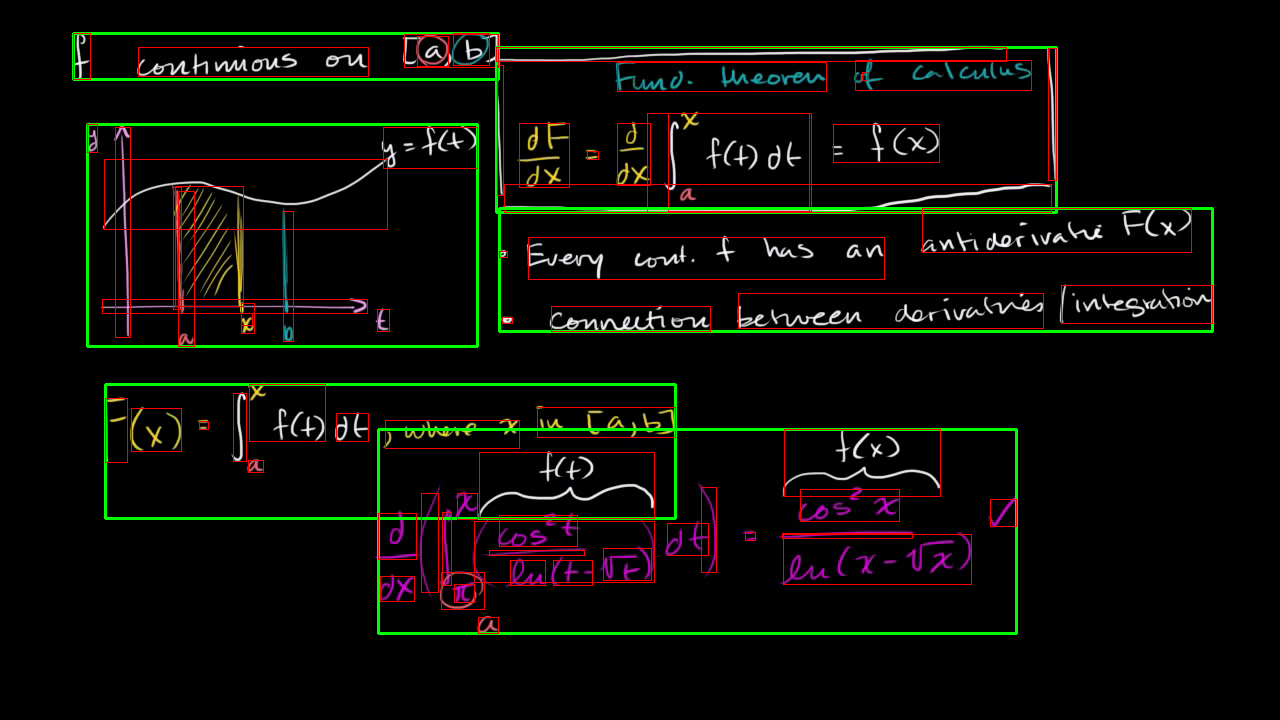 f continuous on [a, b]
Fund. theorem of calculus
dF/dx = d/dx ∫_a^x f(t) dt = f(x)
y
y = f(t)
a
x
b
t
• Every cont. f has an antiderivative F(x)
• connection between derivatives / integration
F(x) = ∫_a^x f(t) dt, where x in [a,b]
f(t)
f(x)
d/dx ( ∫_π^x ( cos² t / ln(t-√t) ) dt ) = cos² x / ln(x-√x) ✓
a